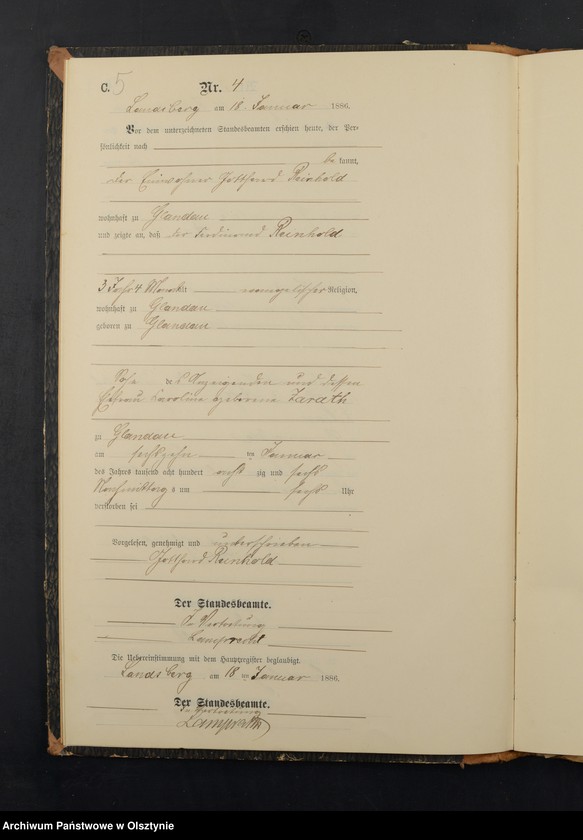 C. 5
Nr. 4.
Landsberg am 18. Januar 1886.
Vor dem unterzeichneten Standesbeamten erschien heute, der Per-
sönlichkeit nach
be kannt,
der Einwohner Gotthard Reinhold
wohnhaft zu Glandau
und zeigte an, daß der Ferdinand Reinhold
3 Jahr 4 Monat alt evangelischer Religion,
wohnhaft zu Glandau
geboren zu Glandau
Sohn des Anzeigenden und dessen
Ehefrau Karoline geborene Zarath
zu Glandau
am sechszehn ten Januar
des Jahres tausend acht hundert acht zig und sechs
Nachmittags um sechs Uhr
verstorben sei
Vorgelesen, genehmigt und unterschrieben
Gotthard Reinhold
Der Standesbeamte.
In Vertretung
Die Uebereinstimmung mit dem Hauptregister beglaubigt.
Landsberg am 18 ten Januar 1886.
Der Standesbeamte.
In Vertretung
Archiwum Państwowe w Olsztynie